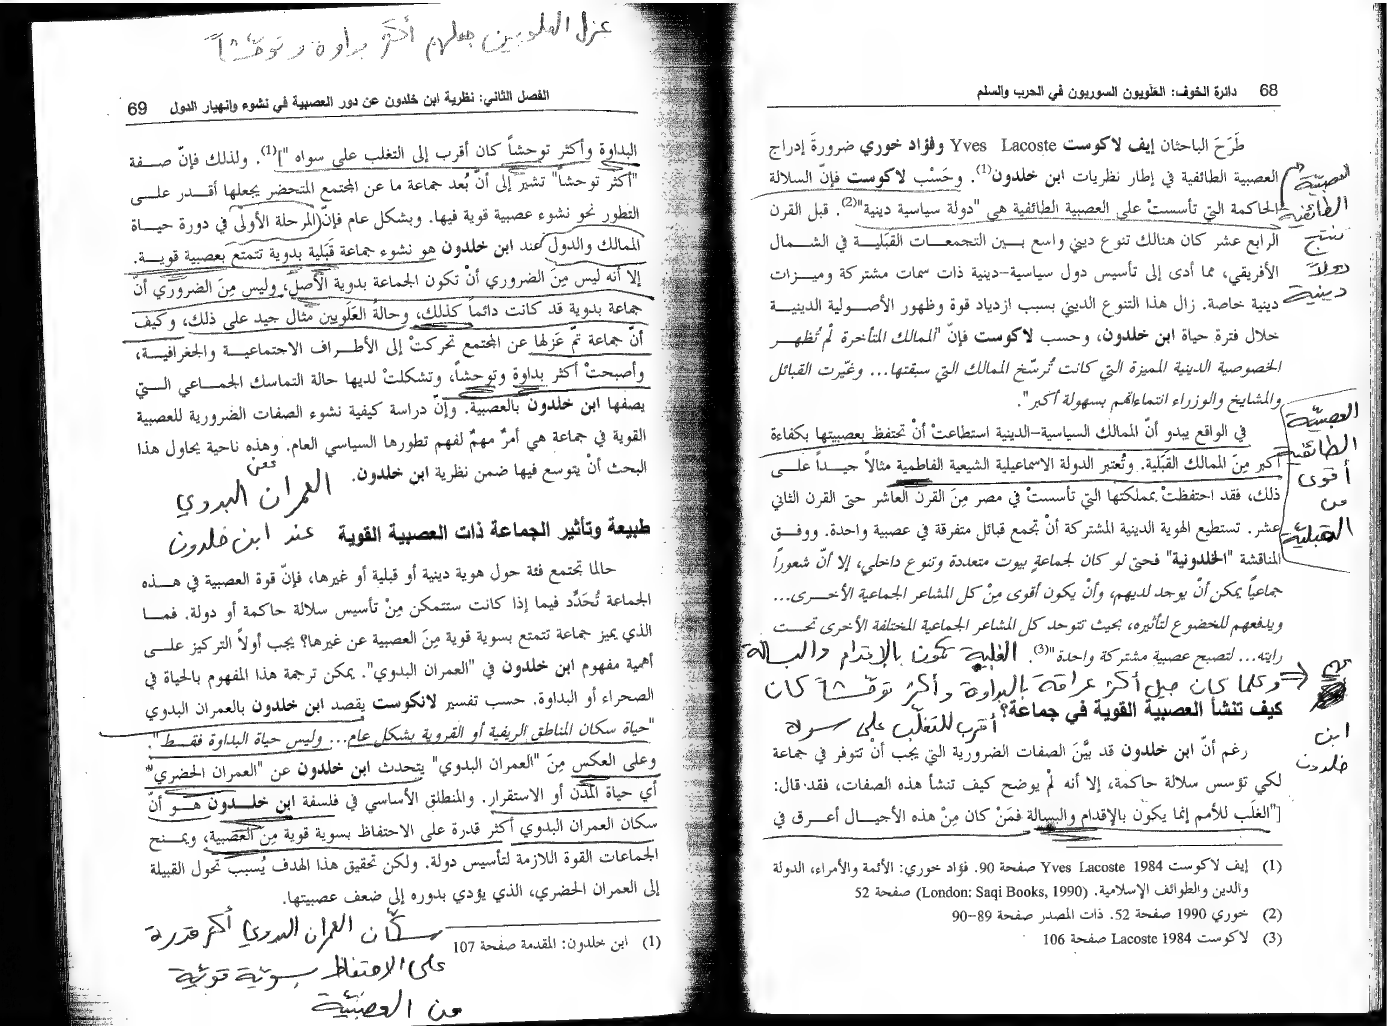 68 دائرة الخوف: العَلَويون السوريون في الحرب والسلم
طَرَحَ الباحثان إيف لاكوست Yves Lacoste وفؤاد خوري ضرورةَ إدراج
العصبية الطائفية في إطار نظريات ابن خلدون(1). وحَسْب لاكوست فإنّ السلالة
الحاكمة التي تأسستْ على العصبية الطائفية هي "دولة سياسية دينية"(2). قبل القرن
الرابع عشر كان هنالك تنوع ديني واسع بين التجمعات القبَلية في الشمال
الأفريقي، مما أدى إلى تأسيس دول سياسية-دينية ذات سمات مشتركة وميزات
دينية خاصة. زال هذا التنوع الديني بسبب ازدياد قوة وظهور الأصولية الدينية
خلال فترة حياة ابن خلدون، وحسب لاكوست فإنّ "الممالك المتأخرة لمْ تُظهر
الخصوصية الدينية المميزة التي كانت تُرسّخ الممالك التي سبقتها... وغيّرت القبائل
والمشايخ والوزراء انتماءاتهم بسهولة أكبر".
في الواقع يبدو أنّ الممالك السياسية-الدينية استطاعتْ أنْ تحتفظ بعصبيتها بكفاءة
أكبر مِنَ الممالك القبَلية. وتُعتبر الدولة الاسماعيلية الشيعية الفاطمية مثالاً جيداً على
ذلك، فقد احتفظتْ بمملكتها التي تأسستْ في مصر مِنَ القرن العاشر حتى القرن الثاني
عشر. تستطيع الهوية الدينية المشتركة أنْ تجمع قبائل متفرقة في عصبية واحدة. ووفق
المناقشة "الخلدونية" فحتى لو كان لجماعةٍ بيوت متعددة وتنوع داخلي، إلا أنّ شعوراً
جماعياً يمكن أنْ يوجد لديهم، وأنْ يكون أقوى مِنْ كل المشاعر الجماعية الأخرى...
ويدفعهم للخضوع لتأثيره، بحيث تتوحد كل المشاعر الجماعية المختلفة الأخرى تحت
رايته... لتصبح عصبية مشتركة واحدة"(3).
الغلبة تكون بالإقدام والبسالة
وكلما كان جيل أكثر عراقة بالبداوة وأكثر توحّشاً كان
أقرب للتغلّب على سواه
كيف تنشأ العصبية القوية في جماعة؟
رغم أنّ ابن خلدون قد بيَّنَ الصفات الضرورية التي يجب أنْ تتوفر في جماعة
لكي تؤسس سلالة حاكمة، إلا أنه لمْ يوضح كيف تنشأ هذه الصفات، فقد قال:
["الغَلَب للأمم إنما يكون بالإقدام والبسالة فمَنْ كان مِنْ هذه الأجيال أعرق في
(1) إيف لاكوست Yves Lacoste 1984 صفحة 90. فؤاد خوري: الأئمة والأمراء، الدولة
والدين والطوائف الإسلامية. (London: Saqi Books, 1990) صفحة 52
(2) خوري 1990 صفحة 52. ذات المصدر صفحة 89-90
(3) لاكوست Lacoste 1984 صفحة 106
العصبيّة
الطائفية
تنتج
دولة
دينية
العصبيّة
الطائفية
أقوى
من
القبلية
ابن
خلدون
عزل العلويين جعلهم أكثر بداوة وتوحّشاً
الفصل الثاني: نظرية ابن خلدون عن دور العصبية في نشوء وانهيار الدول 69
البداوة وأكثر توحشاً كان أقرب إلى التغلب على سواه"](1). ولذلك فإنّ صفة
"أكثر توحشاً" تشير إلى أنّ بُعد جماعة ما عن المجتمع المتحضر يجعلها أقدر على
التطور نحو نشوء عصبية قوية فيها. وبشكل عام فإنّ المرحلة الأولى في دورة حياة
الممالك والدول عند ابن خلدون هو نشوء جماعة قبَلية بدوية تتمتع بعصبية قوية.
إلا أنه ليس مِنَ الضروري أنْ تكون الجماعة بدوية الأصل، وليس مِنَ الضروري أنّ
جماعة بدوية قد كانت دائماً كذلك، وحالةُ العَلَويين مثال جيد على ذلك، وكيف
أنّ جماعة تمَّ عَزلها عن المجتمع تحركتْ إلى الأطراف الاجتماعية والجغرافية،
وأصبحتْ أكثر بداوة وتوحشاً، وتشكلتْ لديها حالة التماسك الجماعي التي
يصفها ابن خلدون بالعصبية. وإنّ دراسة كيفية نشوء الصفات الضرورية للعصبية
القوية في جماعة هي أمرٌ مهمٌ لفهم تطورها السياسي العام. وهذه ناحية يحاول هذا
البحث أنْ يتوسع فيها ضمن نظرية ابن خلدون.
معنى
العمران البدوي
عند ابن خلدون
طبيعة وتأثير الجماعة ذات العصبية القوية
حالما تجتمع فئة حول هوية دينية أو قبلية أو غيرها، فإنّ قوة العصبية في هذه
الجماعة تُحَدِّد فيما إذا كانت ستتمكن مِنْ تأسيس سلالة حاكمة أو دولة. فما
الذي يميز جماعة تتمتع بسوية قوية مِنَ العصبية عن غيرها؟ يجب أولاً التركيز على
أهمية مفهوم ابن خلدون في "العمران البدوي". يمكن ترجمة هذا المفهوم بالحياة في
الصحراء أو البداوة. حسب تفسير لانكوست يقصد ابن خلدون بالعمران البدوي
"حياة سكان المناطق الريفية أو القروية بشكل عام... وليس حياة البداوة فقط".
وعلى العكس مِنَ "العمران البدوي" يتحدث ابن خلدون عن "العمران الحضري"
أي حياة المُدن أو الاستقرار. والمنطلق الأساسي في فلسفة ابن خلدون هو أنّ
سكان العمران البدوي أكثر قدرة على الاحتفاظ بسوية قوية مِنَ العصبية، ويمنح
الجماعات القوة اللازمة لتأسيس دولة. ولكن تحقيق هذا الهدف يُسبب تحول القبيلة
إلى العمران الحضري، الذي يؤدي بدوره إلى ضعف عصبيتها.
(1) ابن خلدون: المقدمة صفحة 107
سكّان العمران البدوي أكثر قدرة
على الاحتفاظ بسويّة قويّة
من العصبيّة